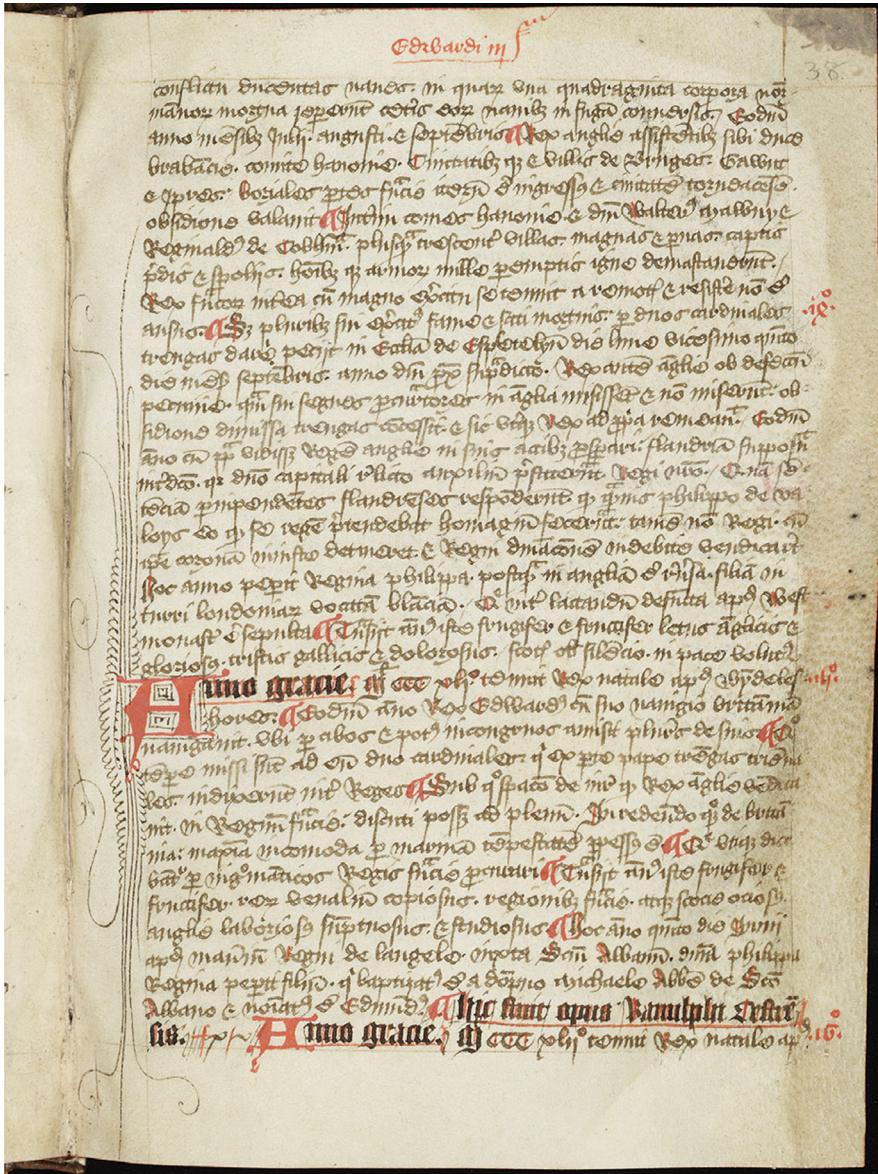 Edwardi iii
38
conflictu ducentas naues. in quar una quadraginta corpora nor
manor mortua repererunt ceteris eor nauibz in fugam conuersis. Eodm
anno mensibz Julii. augusti. & septembris Rex anglie assistentibz sibi duce
brabancie. comite hanonie. Ciuitatibz qz & villis de Bruges. Gawnt
& Ipres. boriales partes francie iterum est ingressus & ciuitatem tornacensem
obsidione valauit Interim comes hanonie & dns Walterus Mawny &
Reginaldus de Cobham. plusquam trescentas villas magnas & paruas. captis
predis & spoliis. hoibz qz armor mille peremptis igne deuastauerunt.
Rex francor interea cum magno exercitu se tenuit a remotis & resistere non est
ausus. Sz pluribz sui exercitus fame & siti mortuis. per duos cardinales .ix.
treugas dare petiit in Ecclia de Espetelyn die lune vicesimo quinto
die mensis septembris. anno dni prox supradicto. Rex autem anglie ob defectum
pecunie. quam sui segnes procuratores in anglia misisse & non miserunt. ob
sidione dimissa treugas concessit. & sic uterqz Rex ad propria remeauit. Eodem
anno cum papa vidisset Regem anglie in suis actibz prosperari. flandriam supposuit
interdicto. quia dno capitali relicto auxilium prestiterunt Regi nostro.
penipendentes flandrenses responderunt. qd quamuis philippo de va
loys eo qd se regem pretendebat homagium fecerunt. tamen non Regi. cum
ipse coronam iniuste detineret. & Regni dominacionem indebite vendicaret
Hoc anno peperit Regina philippa. postquam in angliam est reuersa. filiam in
turri londoniar vocatam blanciam. Que inter lactandum defuncta apud West
monast est sepulta Transiit annus iste frugifer & fructifer letus anglicis &
gloriosus. tristis gallicis & dolorosus. scotis ob silencio. in pace voluitur
Anno gracie. M CCC xlii tenuit Rex natale apud Wyndeles
hores. Eodem anno Rex Edwardus cum suo nauigio britanniam
nauigauit. vbi per cibos & potus incongruos amisit plures de suis Quo
tempore missi sunt ad eum duo cardinales. qui ex parte pape treugas trienna
les. induxerunt inter Reges Sub quo spacio de iure qd Rex anglie vendica
uit. in Regnum francie. discuti posset ad plenum. In redeundo quoqz de britan
nia. maxima incomoda per marinam tempestatem perpessus est Que utiqz dice
bantur per nigromanticos Regis francie procurari Transiit annus iste frugifer &
fructifer. rer venalium copiosus. regionibz francie. atqz scocie ociosus.
anglie laboriosus sumptuosus. & studiosus Hoc anno quinto die Iunii
apud manerium Regni de langele. iuxta Sanctum Albanum. dna philippa
Regina peperit filium. qui baptizatus est a dompno Michaele Abbate de Sco
Albano & nominatus est Edmundus. Hic finit opus Ranulphi Cestren
sis. Anno gracie. M CCC xlii tenuit Rex natale apud .16.